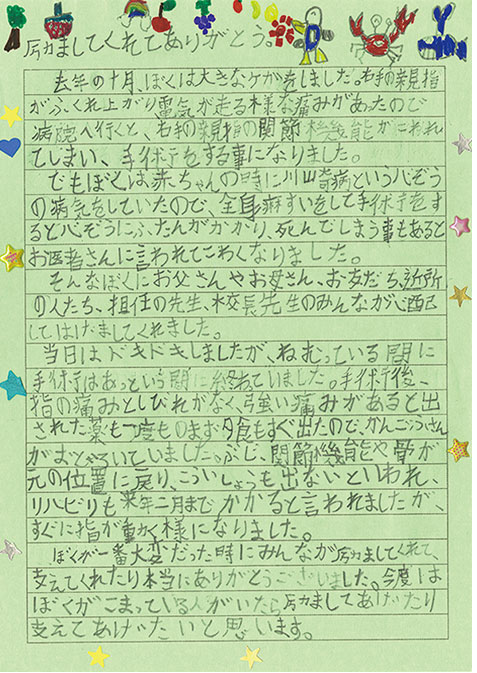 励ましてくれてありがとう。
去年の十月、ぼくは大きなケガをしました。右手の親指
がふくれ上がり電気が走る様な痛みがあったので
病院へ行くと、右手の親指の関節機能がこわれ
てしまい、手術をする事になりました。
でもぼくは赤ちゃんの時に川崎病という心ぞう
の病気をしていたので、全身麻すいをして手術をす
ると心ぞうにふたんがかかり、死んでしまう事もあると
お医者さんに言われてこわくなりました。
そんなぼくにお父さんやお母さん、お友だち、近所
の人たち、担任の先生、校長先生のみんなが心配
してはげましてくれました。
当日はドキドキしましたが、ねむっている間に
手術はあっという間に終わていました。手術後、
指の痛みとしびれがなく、強い痛みがあると出
された薬も一度ものまず夕食もすぐ出たので、かんごふさん
がおどろいていました。ぶじ、関節機能や骨が
元の位置に戻り、こういしょうも出ないといわれ、
リハビリも来年二月までかかると言われましたが、
すぐに指が動く様になりました。
ぼくが一番大変だった時にみんなが励ましてくれて、
支えてくれたり本当にありがとうございました。今度は
ぼくがこまっている人がいたら励ましてあげたり
支えてあげたいと思います。